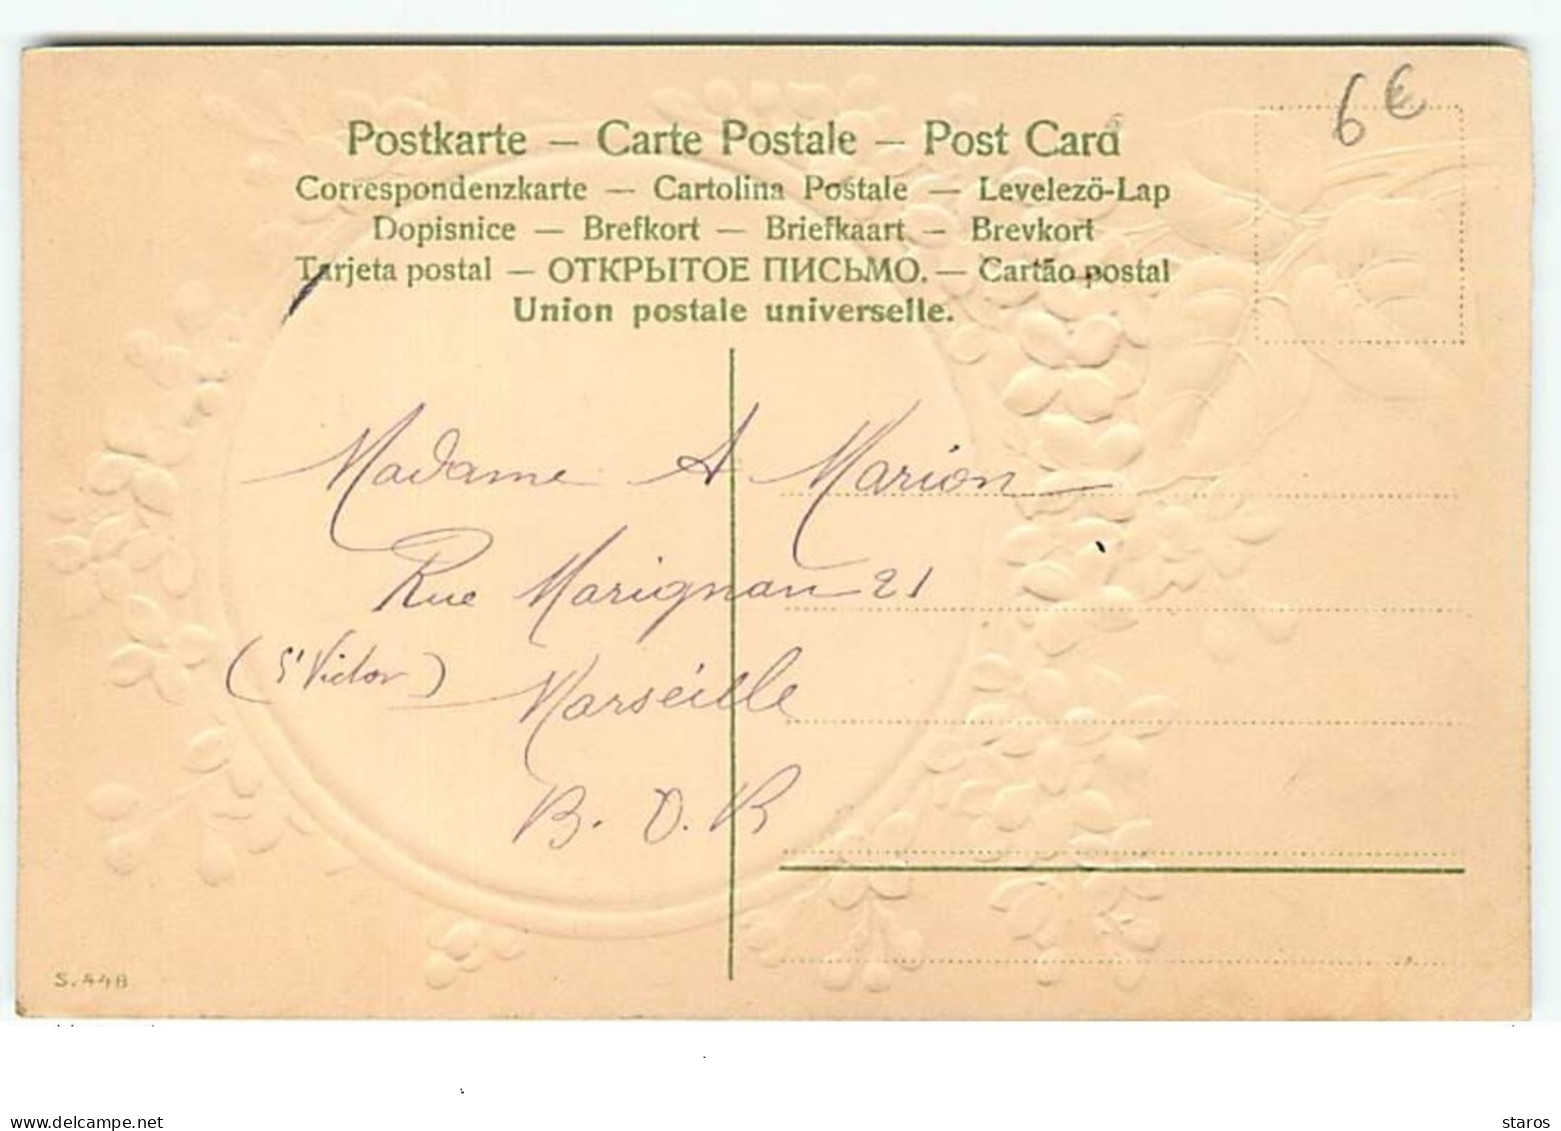 6 €
Postkarte — Carte Postale — Post Card
Correspondenzkarte — Cartolina Postale — Levelezö-Lap
Dopisnice — Brefkort — Briefkaart — Brevkort
Tarjeta postal — ОТКРЫТОЕ ПИСЬМО. — Cartão postal
Union postale universelle.
Madame A Marion
Rue Marignan 21
(St Victor) Marseille
B. D. R
S. 448
www.delcampe.net
staros